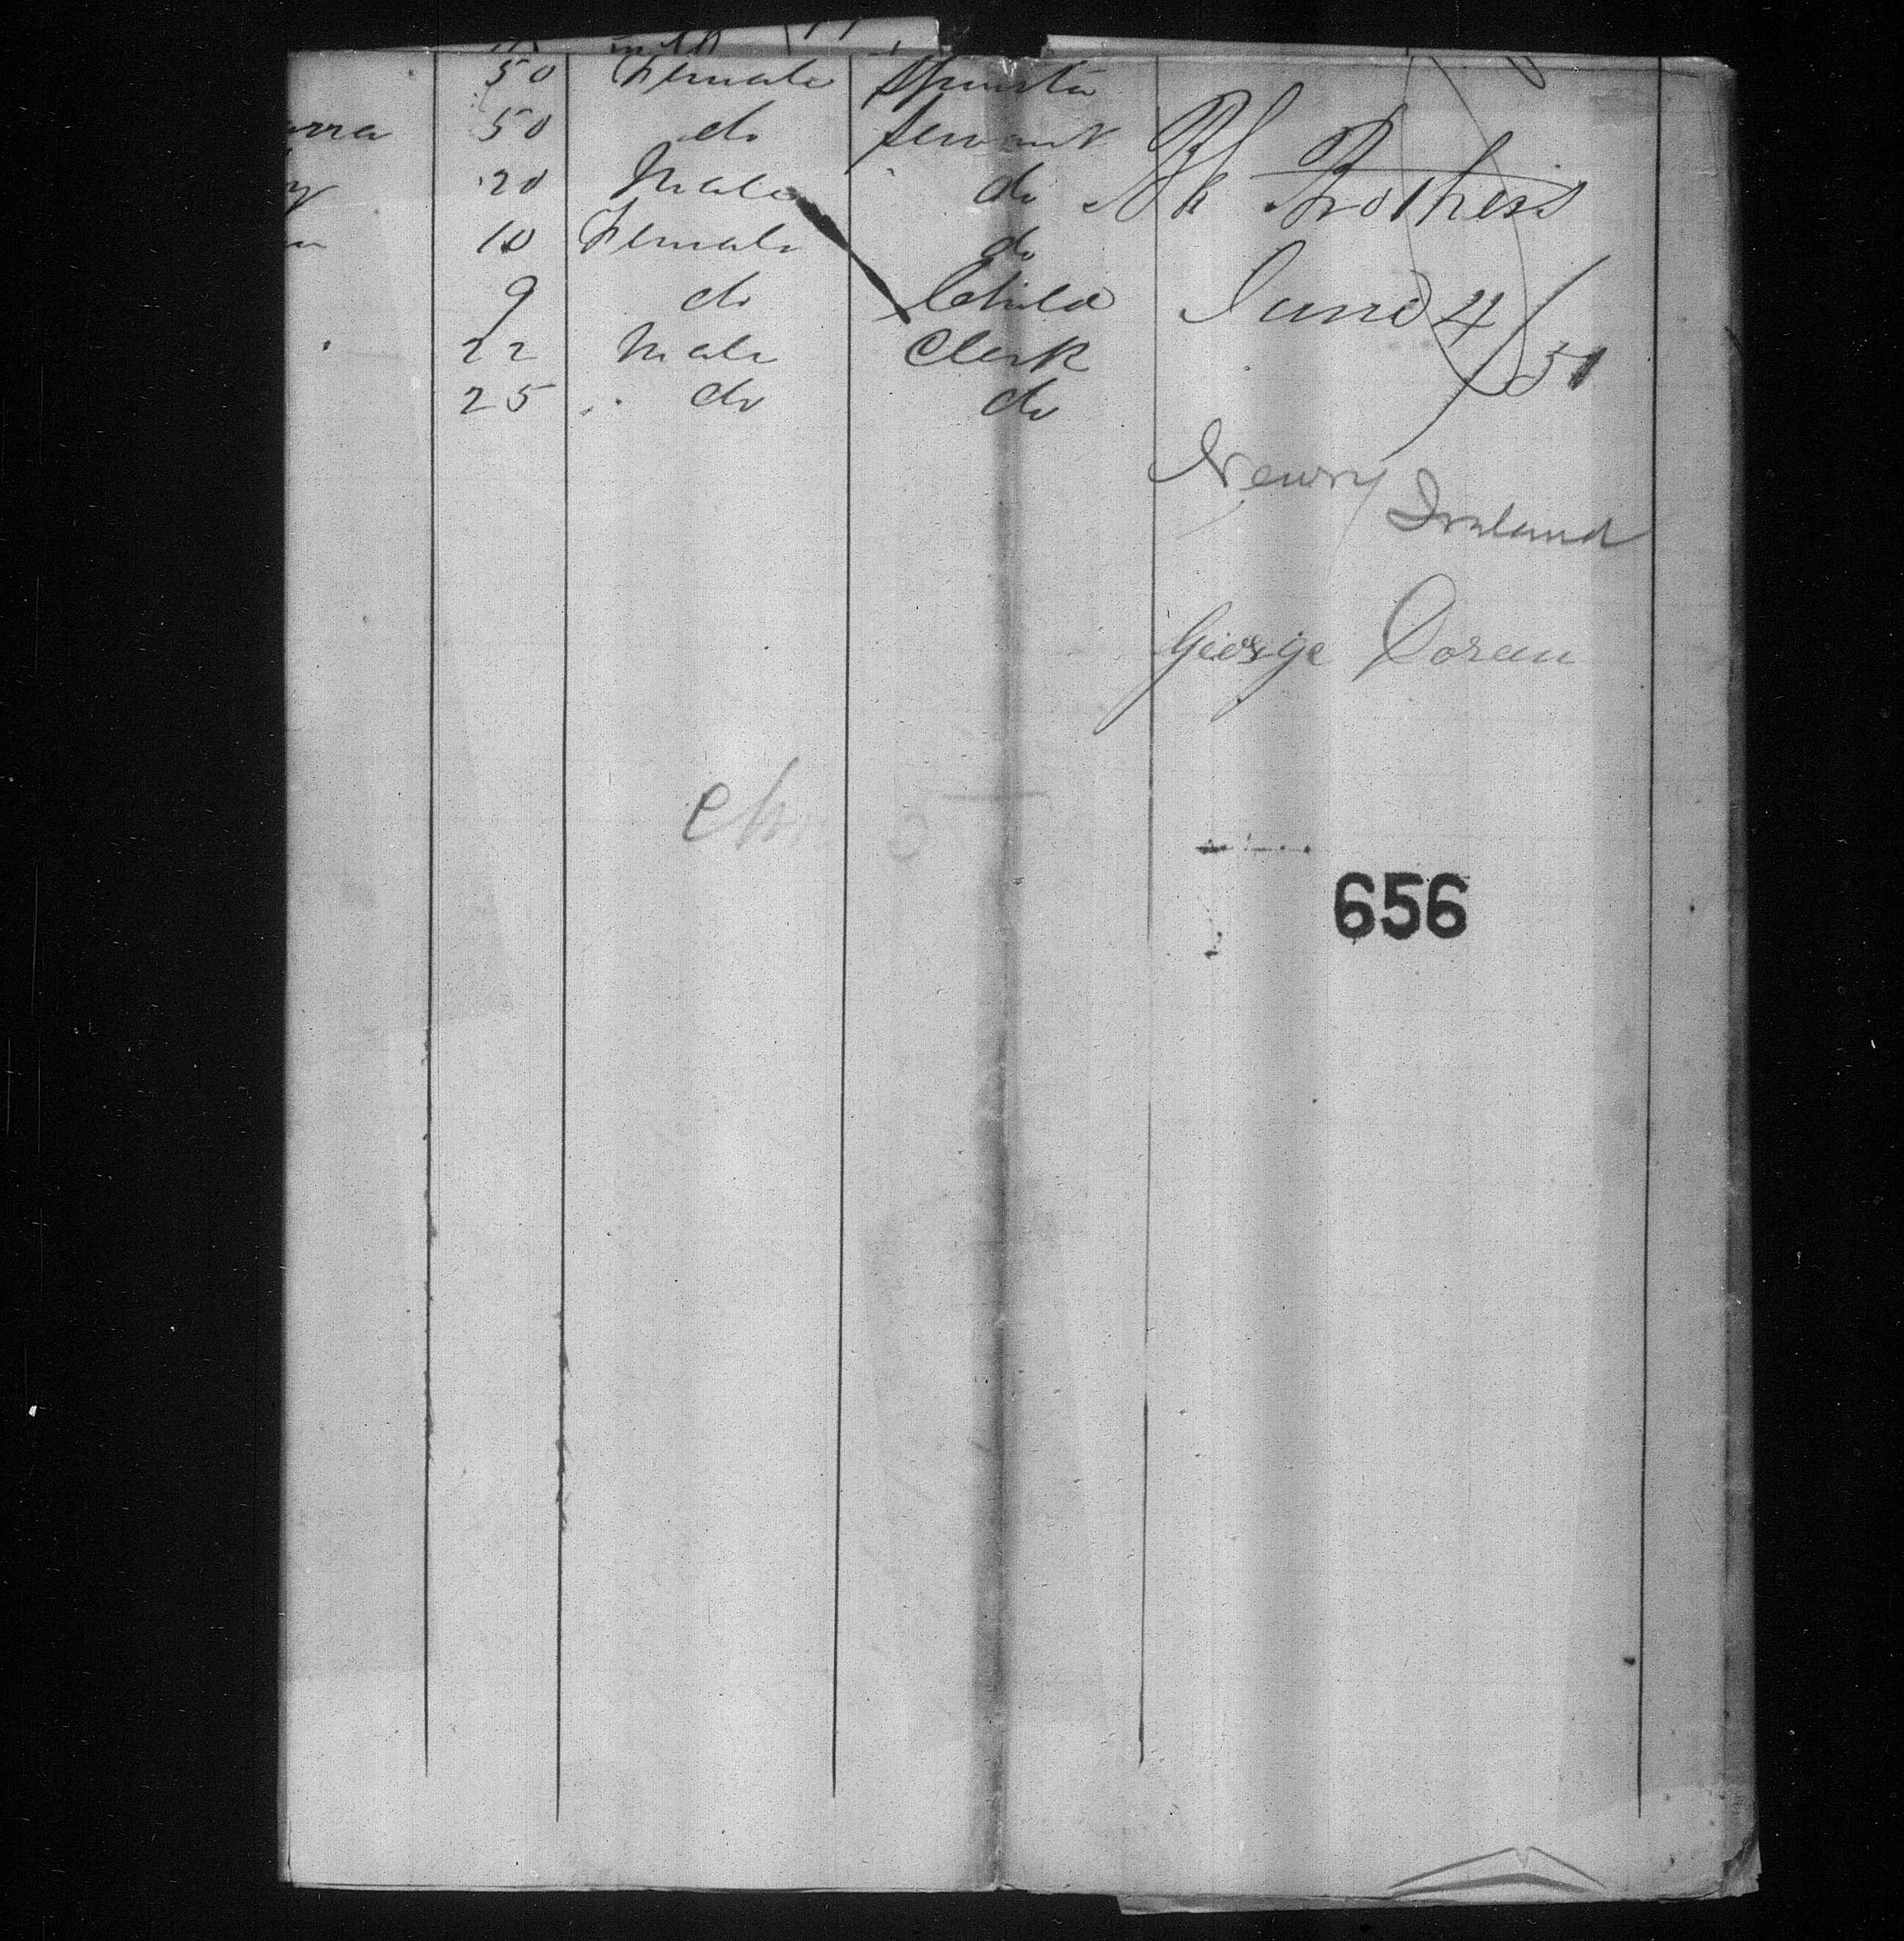 50 Female
50 do Servant
20 Male do
10 Female do
9 do Child
22 Male Clerk
25 do do
Brothers
June 4/51
Newry
Ireland
George Doran
656